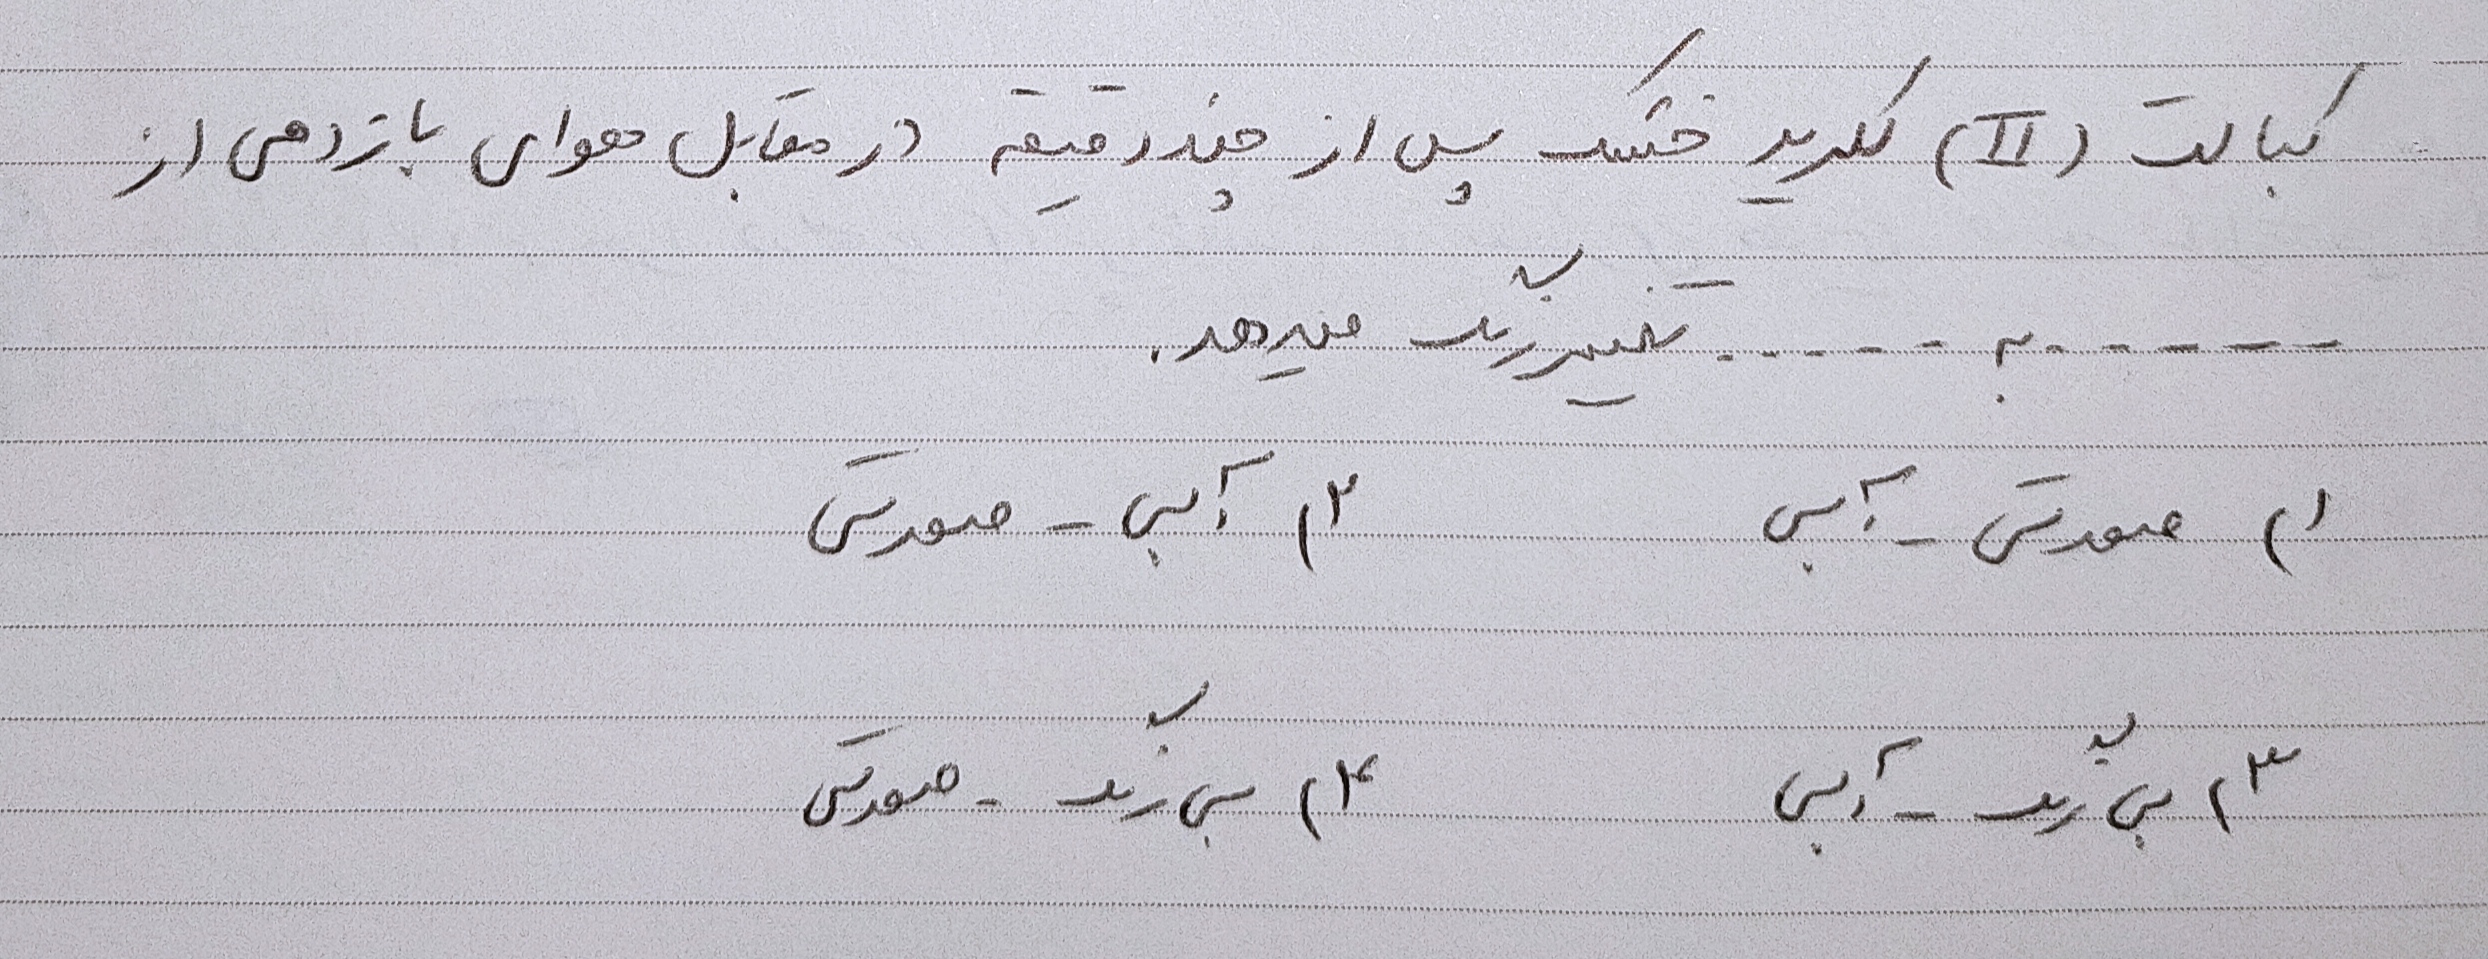 کبالت (II) کلرید خشک پس از چند دقیقه در مقابل هوای بازدمی از
------ به ------ تغییر رنگ میدهد.
۱) صورتی - آبی ۲) آبی - صورتی
۳) بی رنگ - آبی ۴) بی رنگ - صورتی